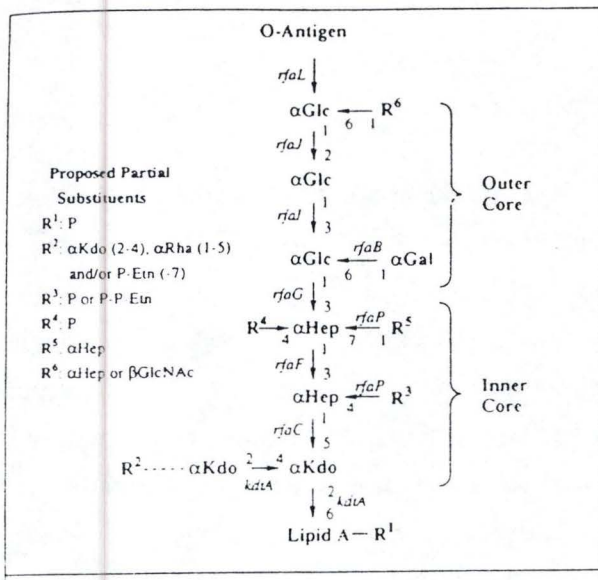 O-Antigen
rfaL
αGlc 6 1 R⁶
1
rfaJ 2
αGlc
1
rfaI 3
αGlc 6 rfaB 1 αGal
1
rfaG 3
R⁴ 4 αHep 7 rfaP 1 R⁵
1
rfaF 3
αHep 4 rfaP R³
1
rfaC 5
R² αKdo 2 kdtA 4 αKdo
2
6 kdtA
Lipid A — R¹
Outer
Core
Inner
Core
Proposed Partial
Substituents
R¹: P
R²: αKdo (2-4), αRha (1-5)
and/or P-Etn (-7)
R³: P or P-P-Etn
R⁴: P
R⁵: αHep
R⁶: αHep or βGlcNAc